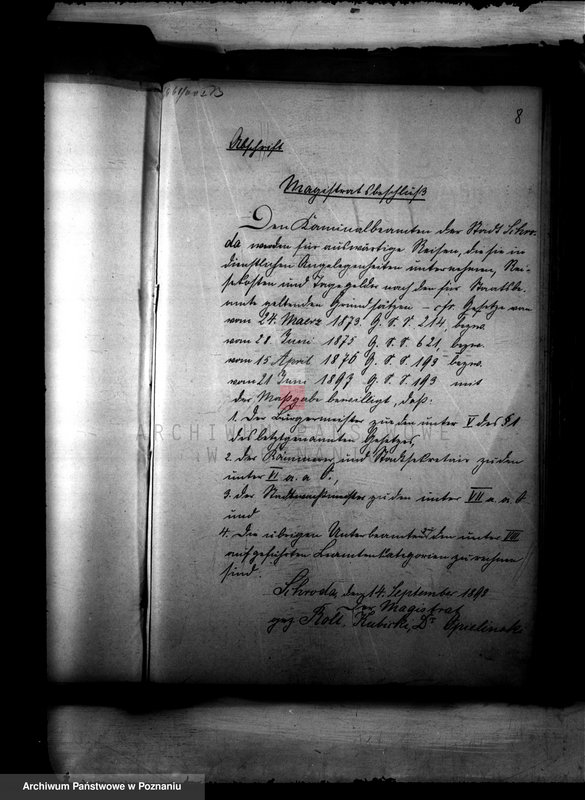 8
Abschrift
Magistratsbeschluß
Den Kaminalbeamten der Stadt Schro-
da werden für auswärtige Reisen, die sie in
dienstlichen Angelegenheiten unternehmen, Rei-
sekosten und Tagegelder nach den für Staatsbe-
amte geltenden Grundsätzen – cfr. Gesetze von
vom 24. Maerz 1873. G. S. S. 214, bezw.
vom 28. Juni 1875 G. S. S. 621, bezw.
vom 15 April 1876 G. S. S. 193 bezw.
vom 21 Juni 1897 G. S. S. 193 mit
der Maßgabe bewilligt, daß:
1. Der Bürgermeister zu den unter V des § 1
des letztgenannten Gesetzes,
2. der Kämmerer und Stadtsekretair zu den
unter VI a. a. O.,
3. der Stadtwachtmeister zu den unter VII a. a. O.
und
4. Die übrigen Unterbeamten zu den unter VIII
aufgeführten Beamtenkategorien zu rechnen
sind.
Schroda, den 14. September 1898
Der Magistrat
gez Roll. Kubicki, Dr Opielinski
ARCHIWUM PAŃSTWOWE
W POZNANIU
Archiwum Państwowe w Poznaniu